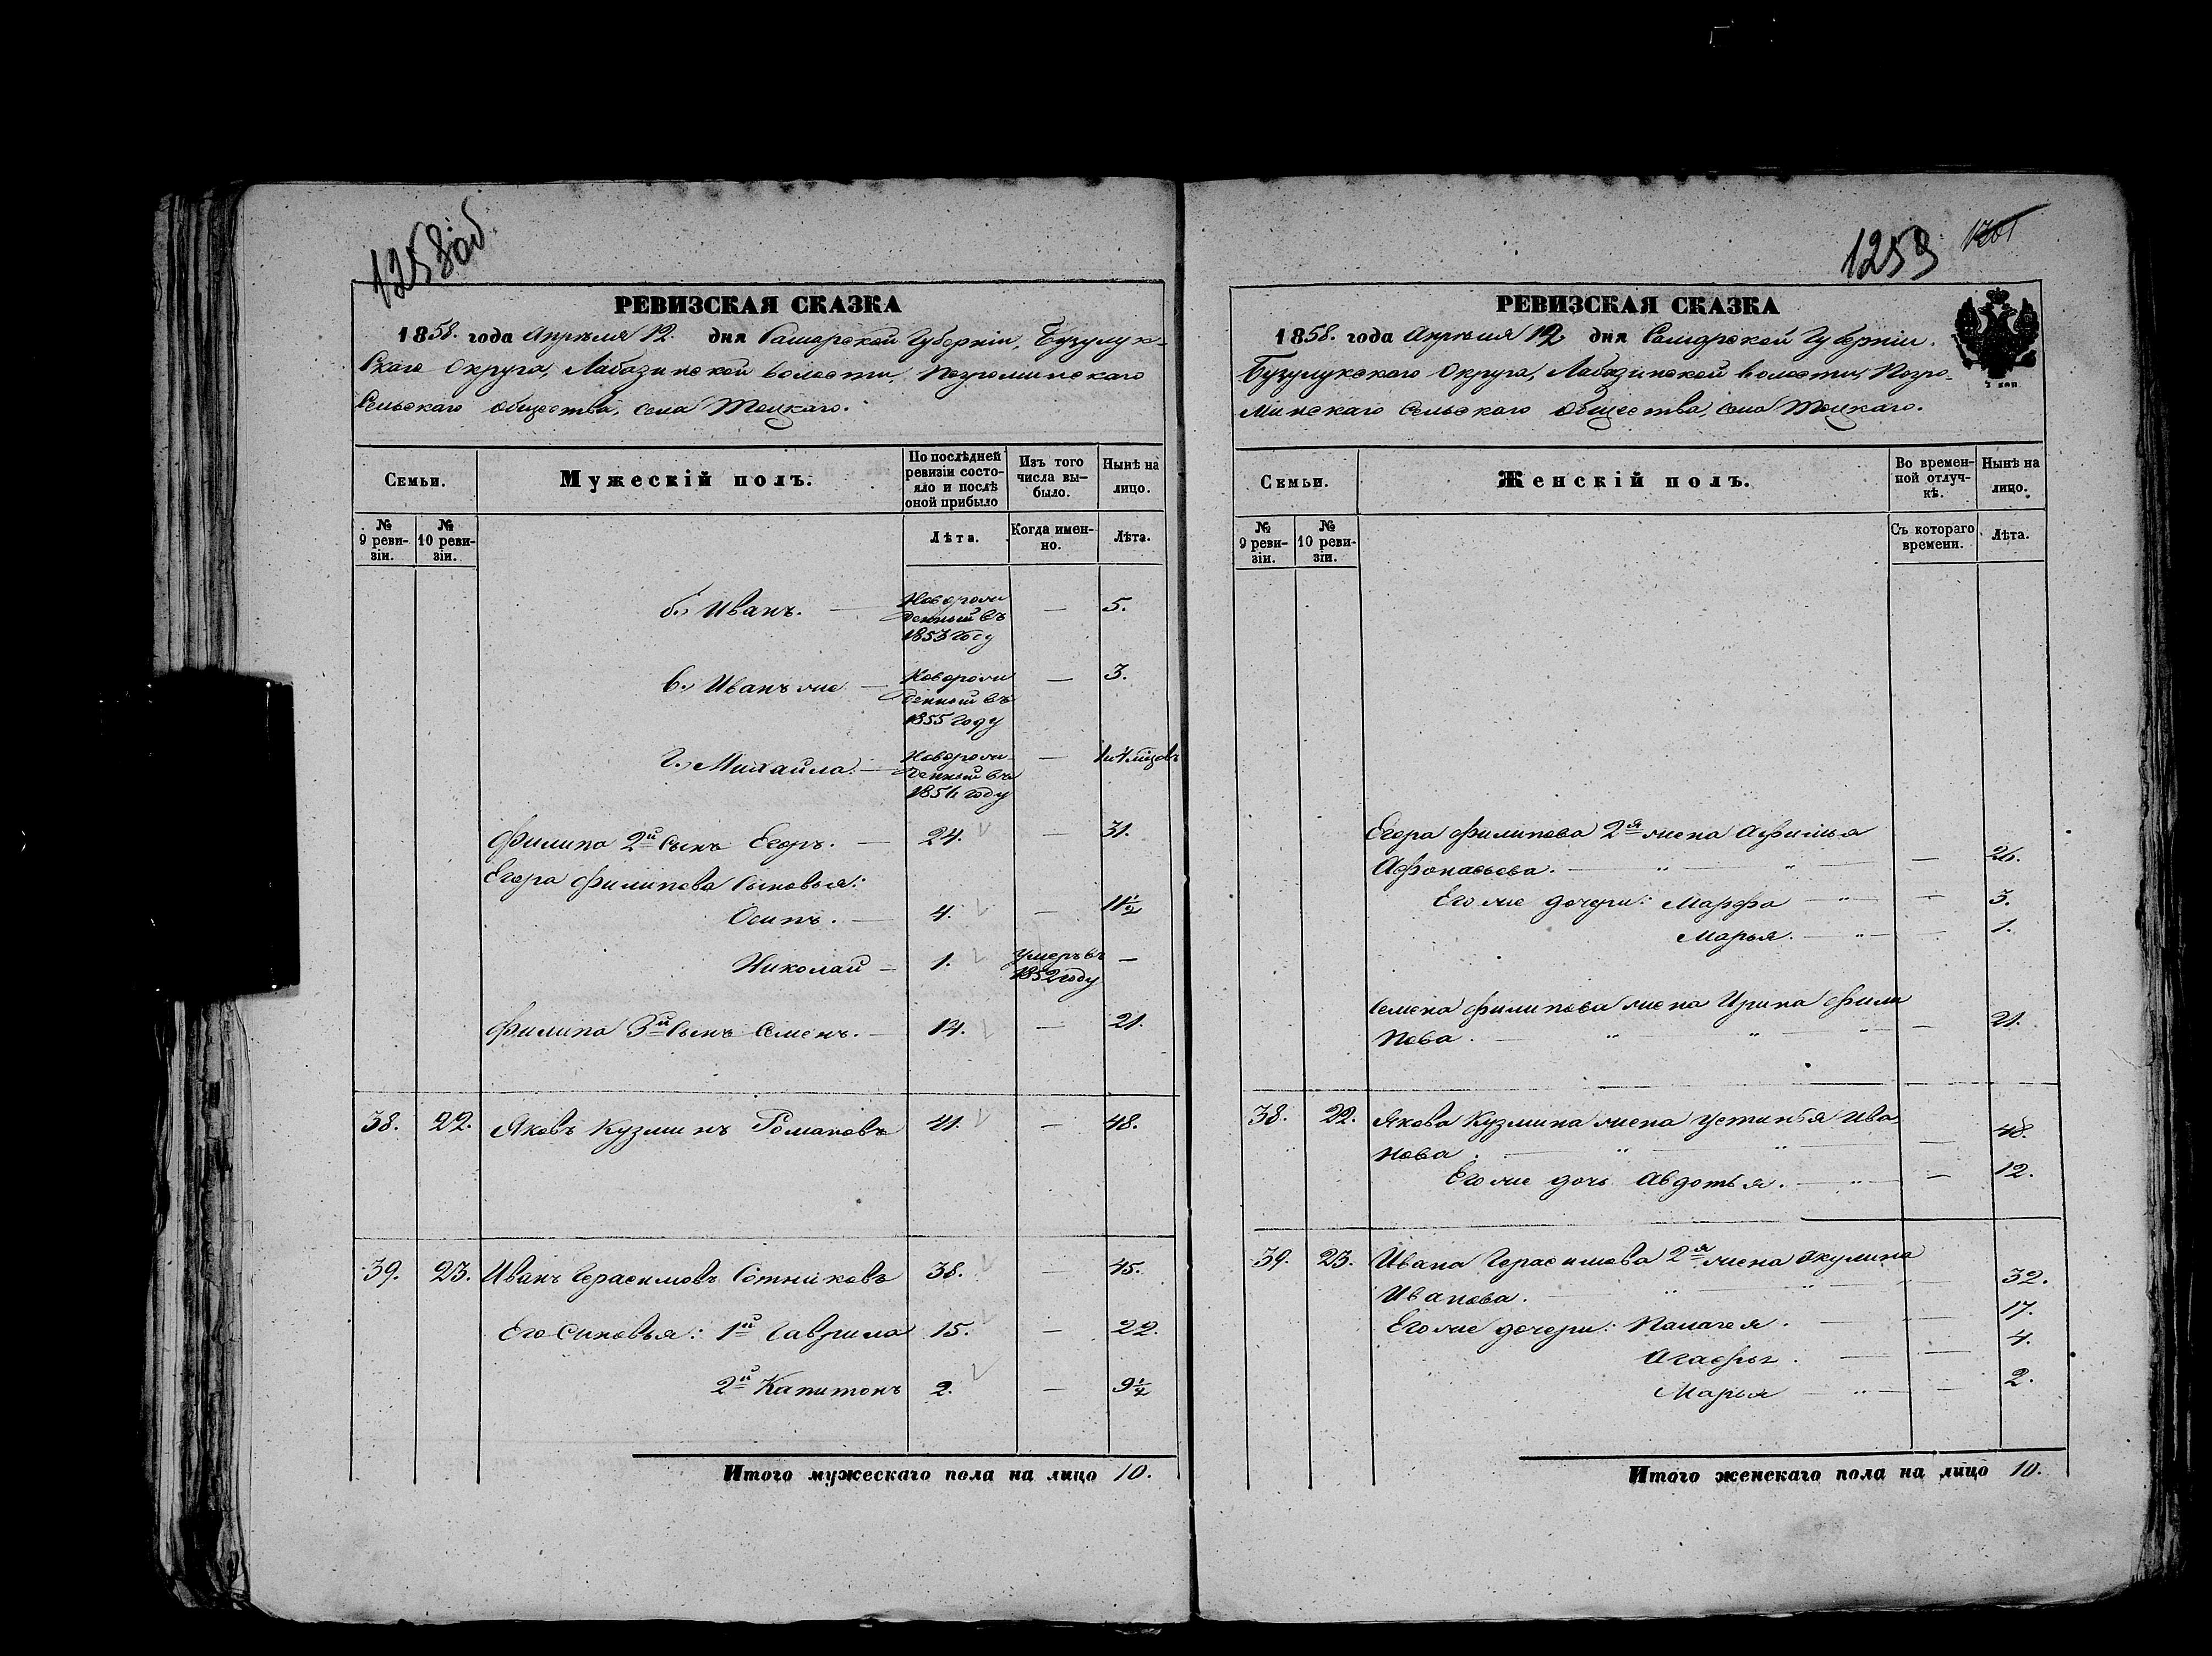 1258об
РЕВИЗСКАЯ СКАЗКА
1858. года Апрѣля 12. дня Самарской Губерніи, Бузулук-
скаго Округа, Лабазинской волости, Погроминскаго
Сельскаго общества, села Тоцкаго.
Семьи.
Мужескій полъ.
По послѣдней
ревизіи состо-
яло и послѣ
оной прибыло
Изъ того
числа вы-
было.
Нынѣ на
лицо.
№
9 реви-
зіи.
№
10 реви-
зіи.
Лѣта.
Когда имен-
но.
Лѣта.
б., Иванъ. — Новорож
денный въ
1853 году — 5.
в., Иванъ же — Новорож
денный въ
1855 году — 3.
г., Михайла. — Новорож-
денный въ
1856 году — 1 и 4 мѣсов
Филипа 2й сынъ Егоръ. — 24. — 31.
Егора Филипова сыновья:
Осипъ. — 4. — 11½
Николай — 1. Умеръ въ
1852 году —
Филипа 3й сынъ Семенъ. — 14. — 21.
38. 22. Яковъ Кузминъ Романовъ 41. — 48.
39. 23. Иванъ Герасимовъ Сотниковъ 38. — 45.
Его синовья: 1й Гаврила 15. — 22.
2й Капитонъ 2. — 9½
Итого мужескаго пола на лицо 10.
1259
1261
РЕВИЗСКАЯ СКАЗКА
1858. года Апрѣля 12 дня Самарской Губерніи.
Бузулукскаго Округа, Лабазинской волости, Погро-
минскаго Сельскаго общества, села Тоцкаго.
Семьи.
Женскій полъ.
Во времен-
ной отлуч-
кѣ.
Нынѣ на
лицо.
№
9 реви-
зіи.
№
10 реви-
зіи.
Съ котораго
времени.
Лѣта.
Егора Филипова 2я жена Афимья
Афонасьева. — — 26.
Его же дочери: Марфа — — 3.
Марья. — — 1.
Семена Филипова жена Ирина Фили
пова. — — 21.
38. 22. Якова Кузмина жена Устинья Ива
нова. — — 48.
Его же дочь Авдотья. — — 12.
39. 23. Ивана Герасимова 2я жена Акулина
Иванова. — — 32.
Его же дочери: Палагея. — — 17.
Агафья. — — 4.
Марья — — 2.
Итого женскаго пола на лицо 10.